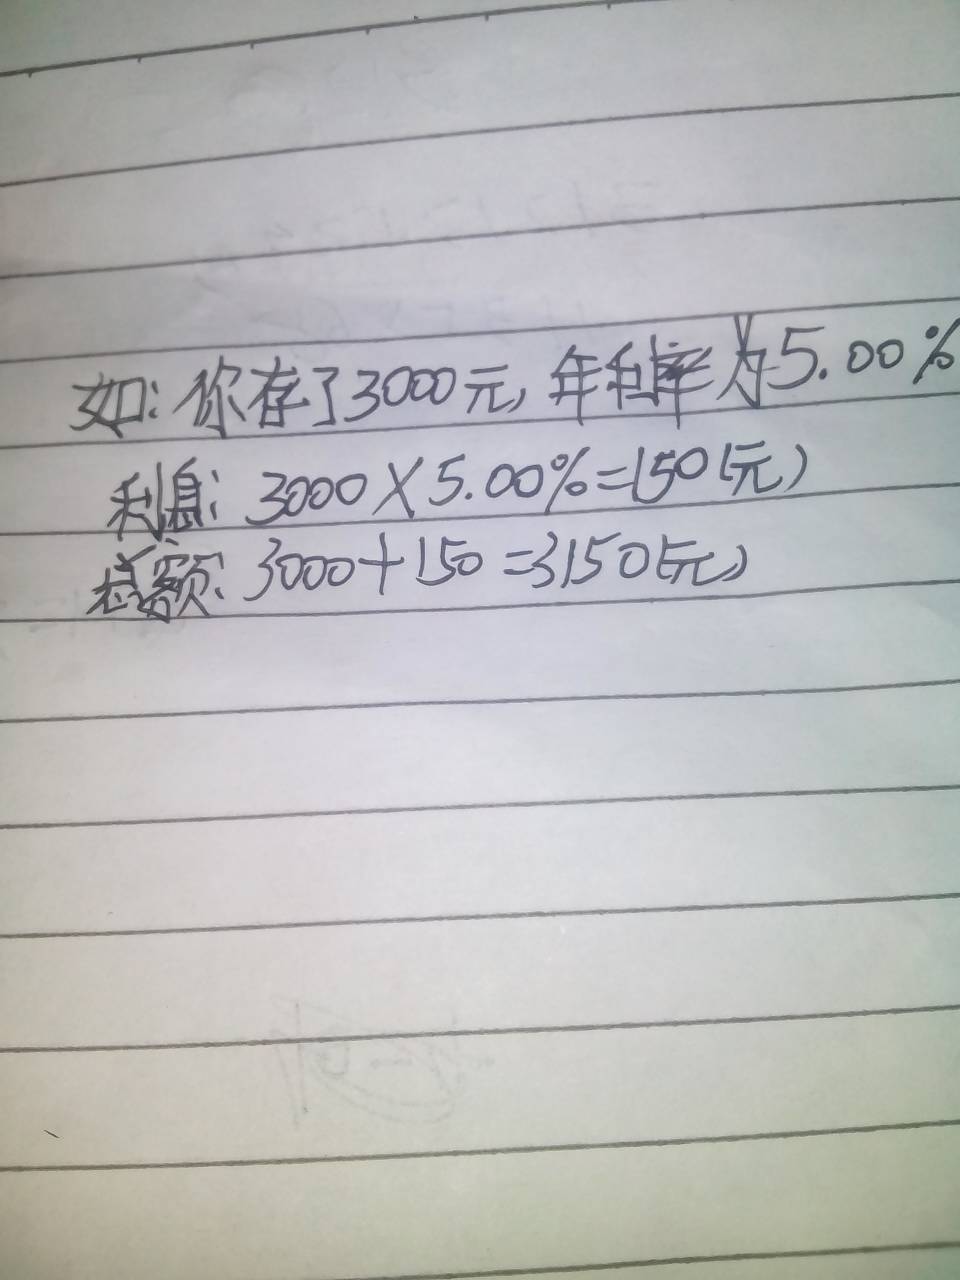 如:你存了3000元,年利率为5.00%
利息:3000×5.00%=150(元)
总额:3000+150=3150(元)